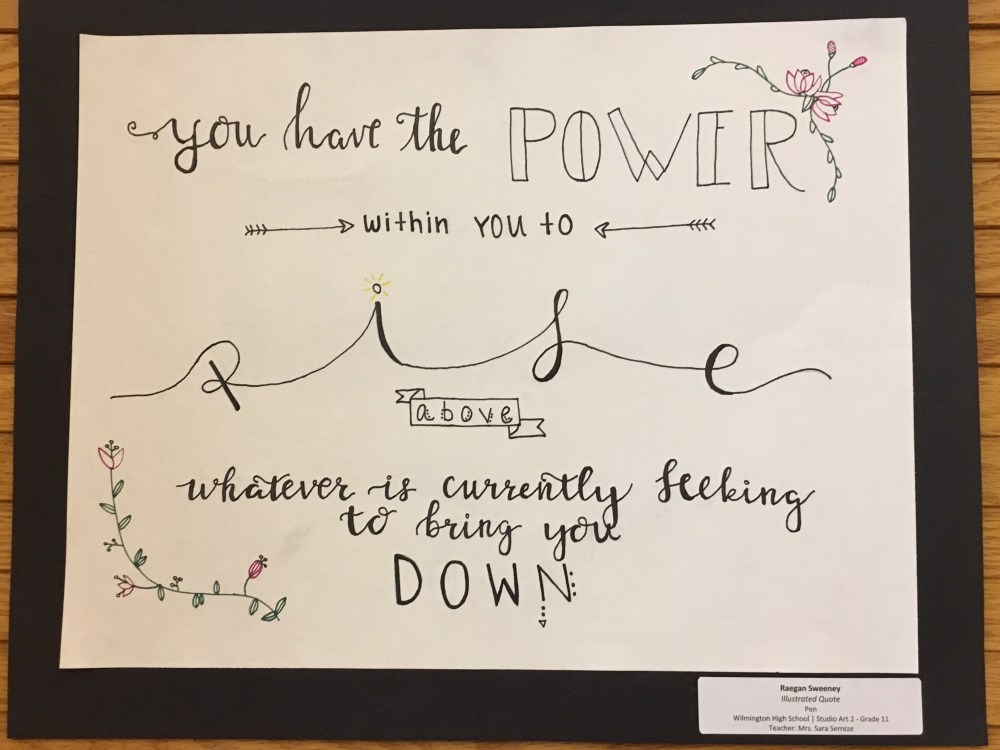 you have the POWER
within YOU to
Rise
above
whatever is currently seeking
to bring you
DOWN
Raegan Sweeney
Illustrated Quote
Pen
Wilmington High School | Studio Art 2 - Grade 11
Teacher: Mrs. Sara Serreze